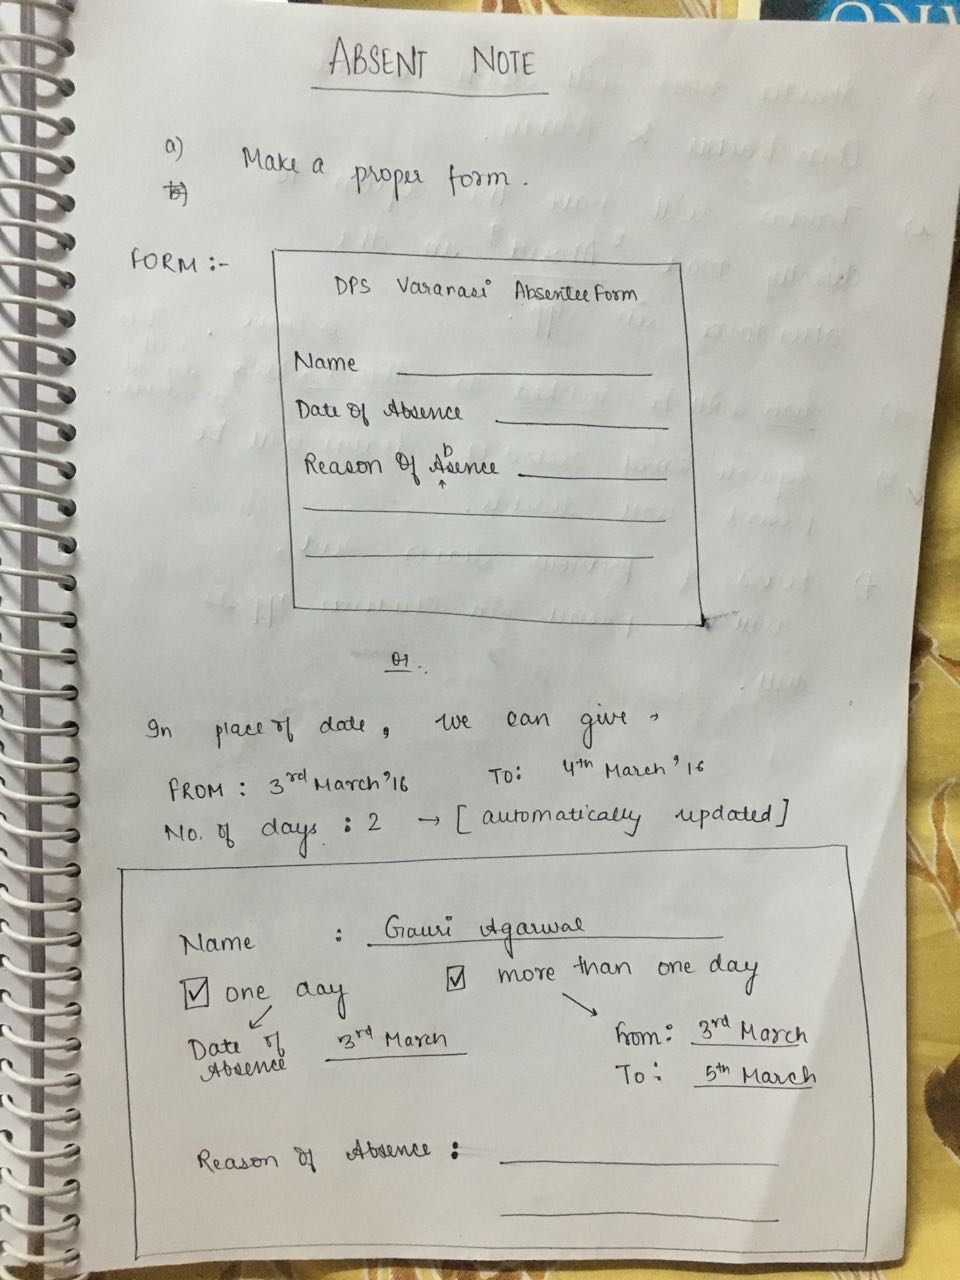 ABSENT NOTE
a) Make a proper form.
b)
FORM :-
DPS Varanasi Absentee Form
Name
Date of Absence
Reason Of Absence
or.
In place of date, we can give →
FROM : 3rd March '16 TO: 4th March '16
No. of days : 2 → [automatically updated]
Name : Gauri Agarwal
☑ one day ☑ more than one day
Date of Absence 3rd March
from: 3rd March
To: 5th March
Reason of Absence :